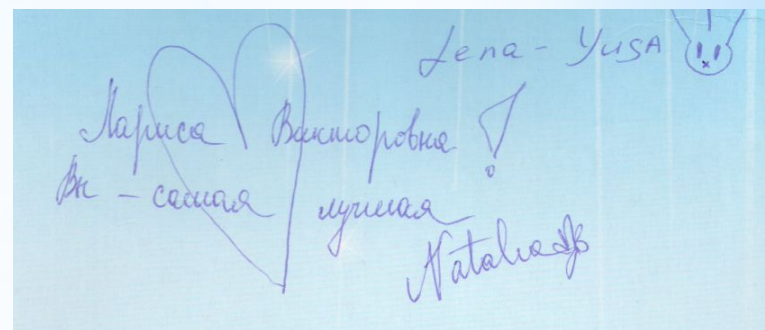 Lena - YUSA
Лариса Викторовна!
Вы - самая лучшая
Natalia